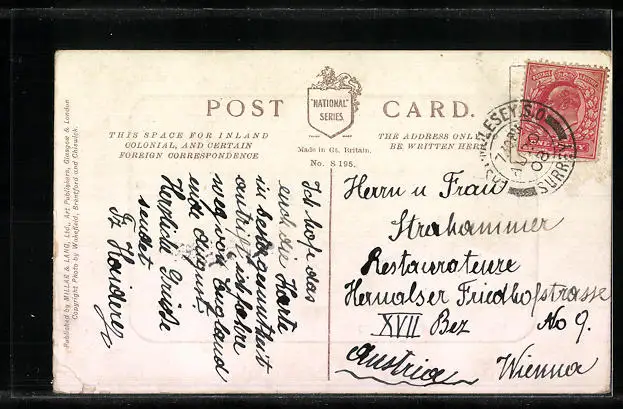 POST CARD.
"NATIONAL"
SERIES.
THIS SPACE FOR INLAND
COLONIAL, AND CERTAIN
FOREIGN CORRESPONDENCE
Made in Gt. Britain.
No. S 195.
THE ADDRESS ONLY
BE WRITTEN HERE
Published by MILLAR & LANG, Ltd., Art Publishers, Glasgow & London
Copyright Photo by Wakefield, Brentford and Chiswick.
Ich hofe das
euch die Karte
in bester
antrift ich fahre
weg von England
ende August
Herzliche Grüsse
sendet
SURREY
Herrn u Frau
Strahammer
Restaurateure
Hernalser Friedhofstrasse
XVII Bez No 9.
Austria Wienna